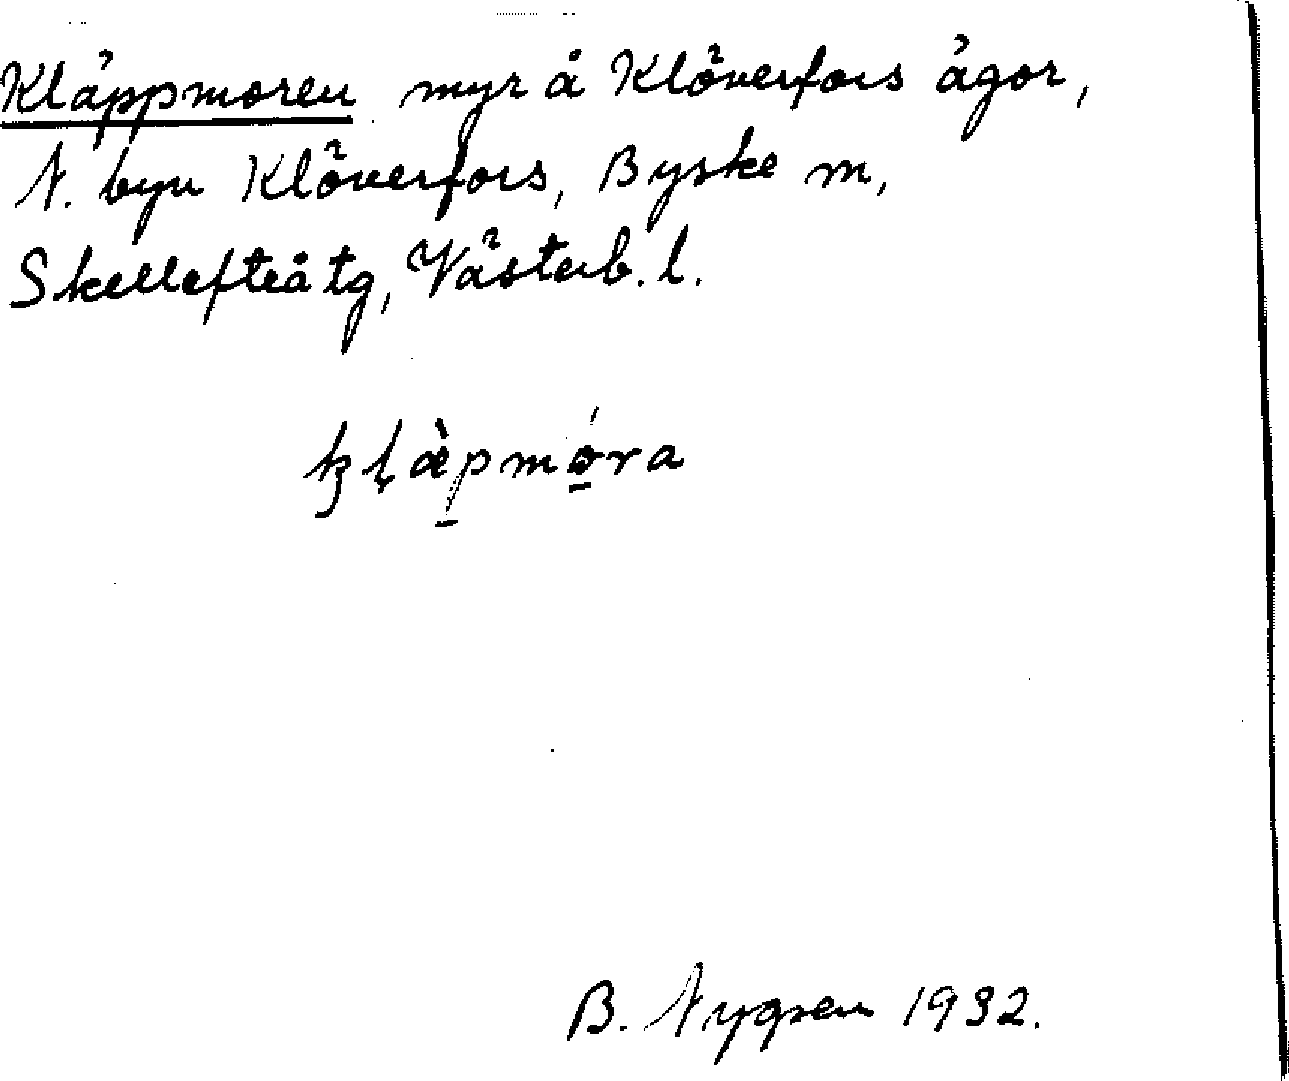 Kläppmoren myr å Klöverfors ägor,
N. byn Klöverfors, Byske sn,
Skellefteå tg, Västerb. l.
kḷæ̀pmǿra
B. Nygren 1932.